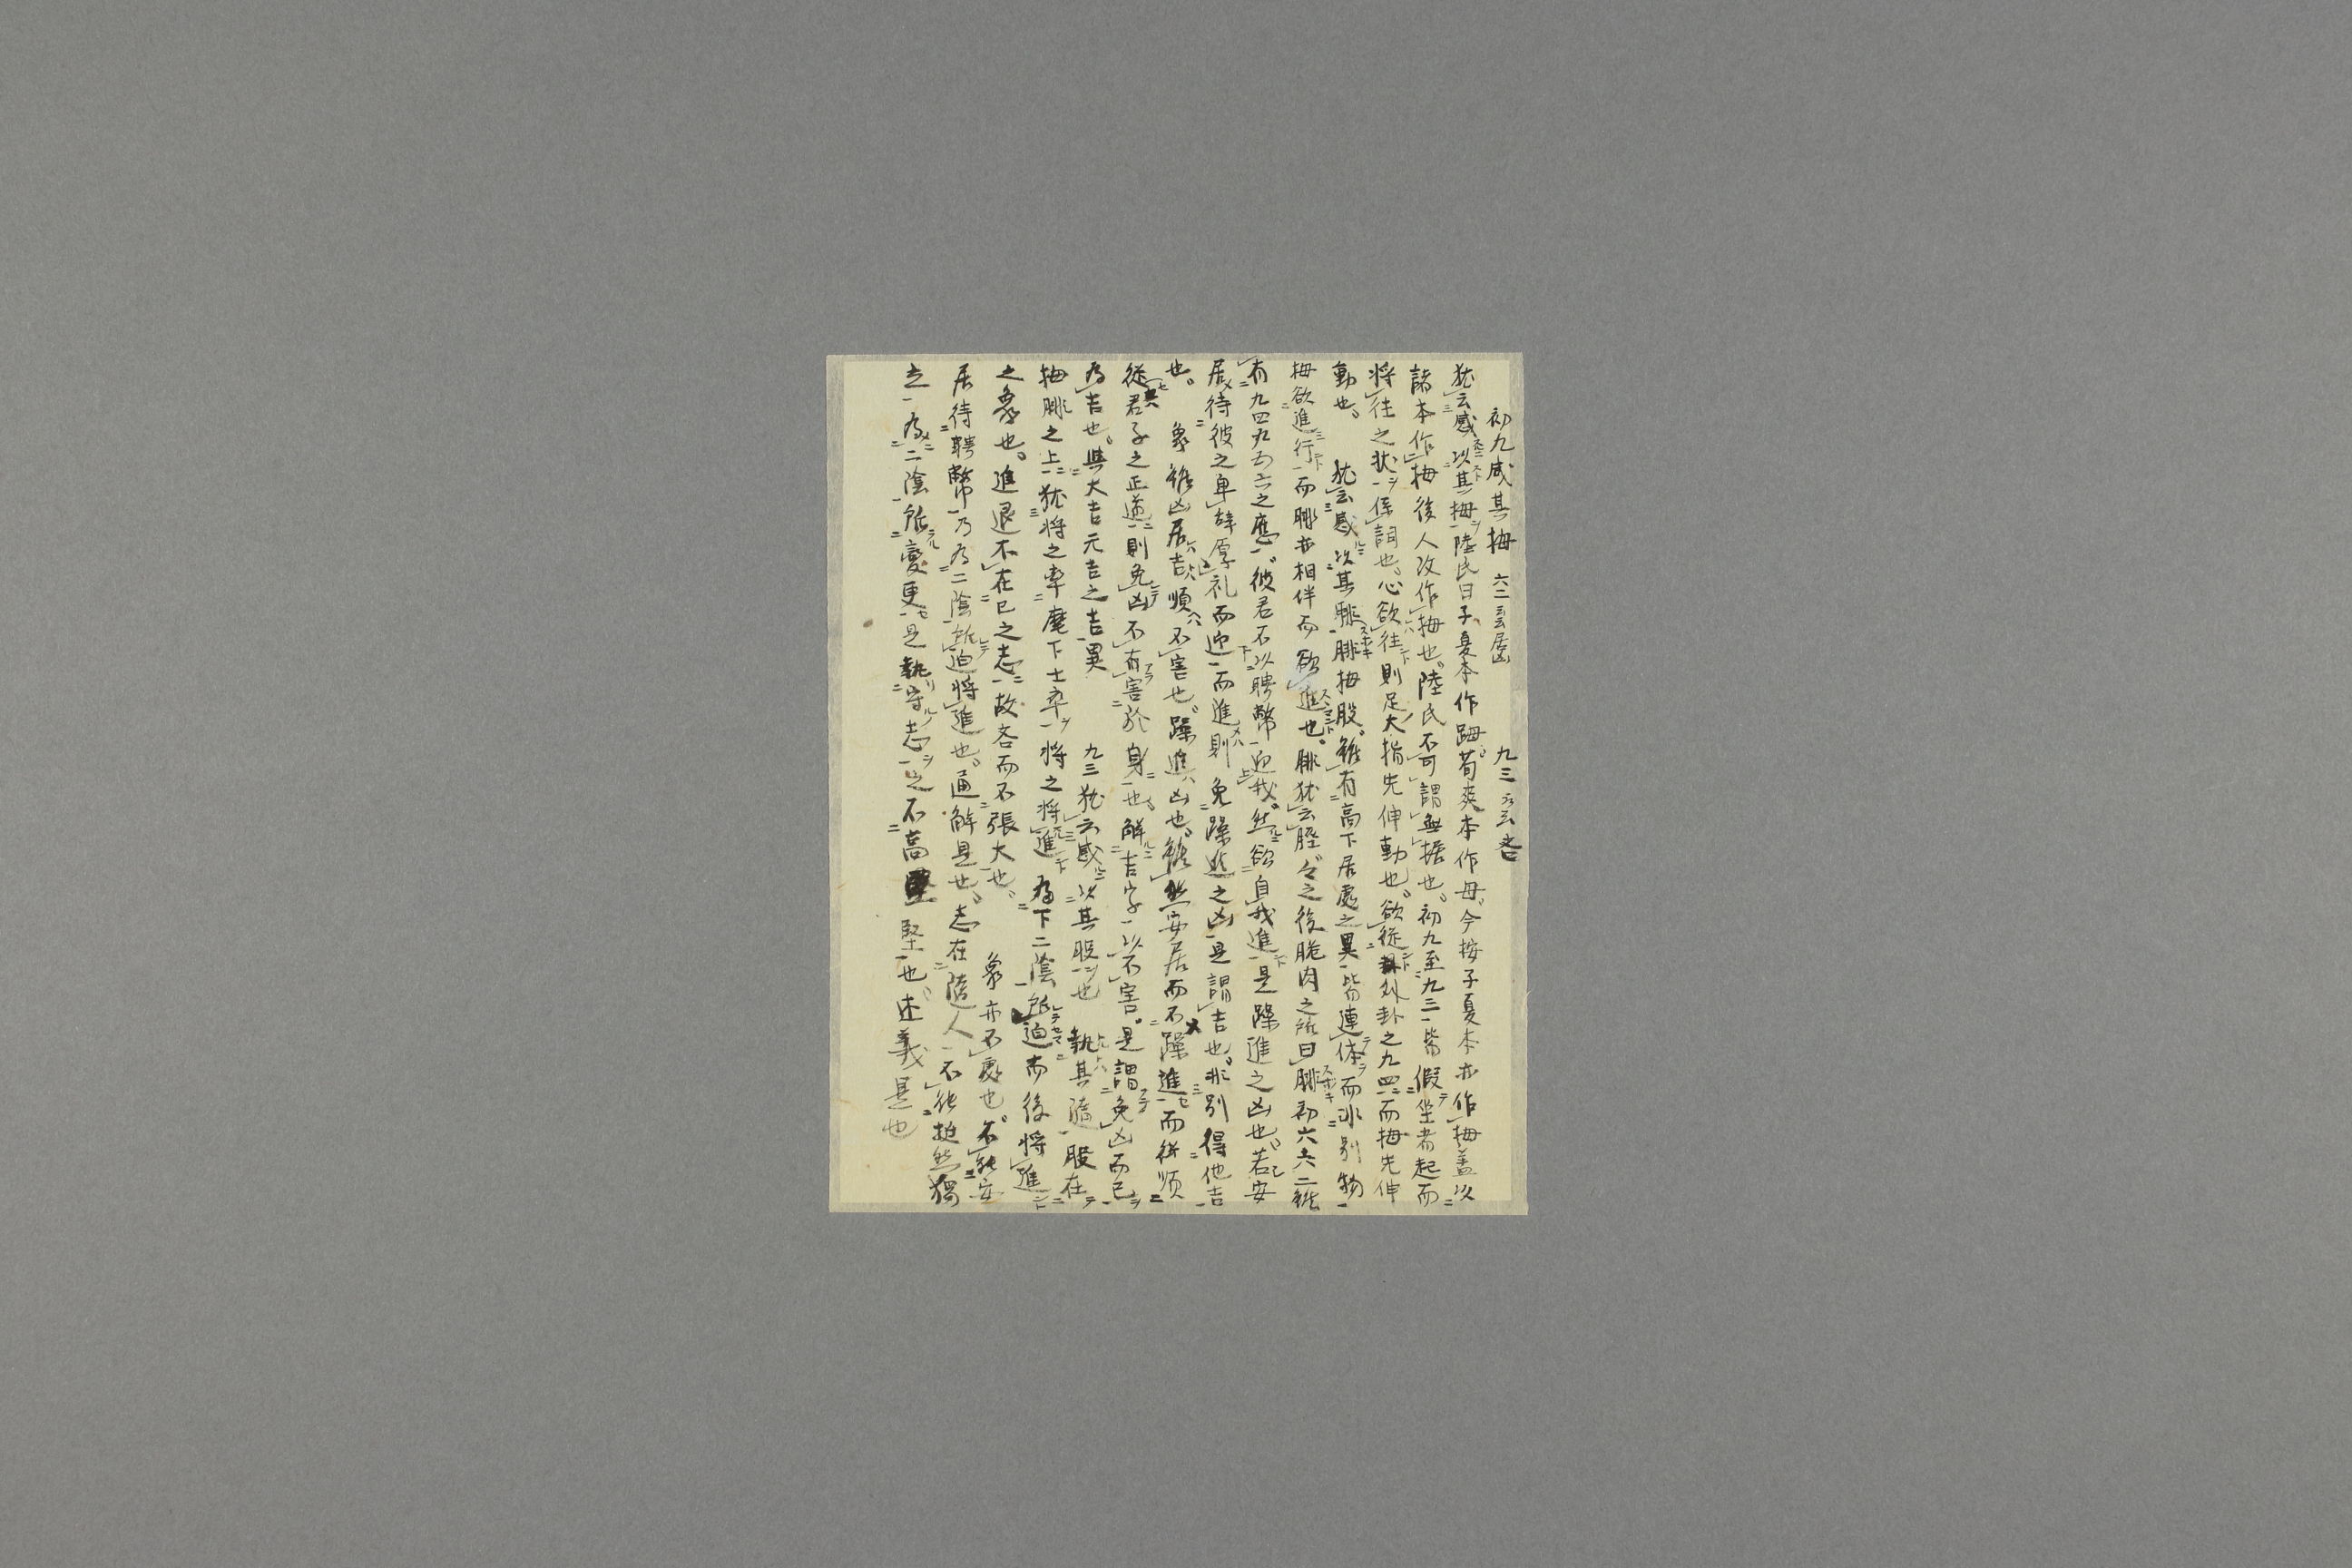 初九咸其拇　六二云云居凶　九三云云吝
犹云感以其拇陸氏曰子夏本作𨁈荀爽本作母今按子夏本亦作拇蓋以
諸本作拇後人改作拇也陸氏不可謂無據也初九至九三皆假坐者起而
将往之状係詞也心欲往則足大指先伸動也欲従外卦之九四而拇先伸
動也　犹云感以其腓腓拇股雖有高下居處之異皆連体而非別物
拇欲進行而腓亦相伴而欲進也腓犹云脛々之後脆肉之所曰腓初六六二雖
有九四九五之應彼君不以聘幣迎我然欲自我進是躁進之凶也若安
居待彼之卑辞厚礼而迎而進則免躁進之凶是謂吉也非別得他吉
也　象雖凶居吉順不害也躁進凶也雖然安居而不躁進而従順
従君子之正道則免凶不有害於身也解吉字以不害是謂免凶而已
為吉也與大吉元吉之吉異　九三犹云感以其股也　執其随股在
拇腓之上犹将之率麾下士卒将之将進為下二陰所迫而後将進
之象也進退不在己之志故吝而不張大也　象亦不處也不能安
居待聘幣乃為二陰所迫将進也通解是也志在随人不能挺然獨
立為二陰所変更是執守志之不高堅也述義是也